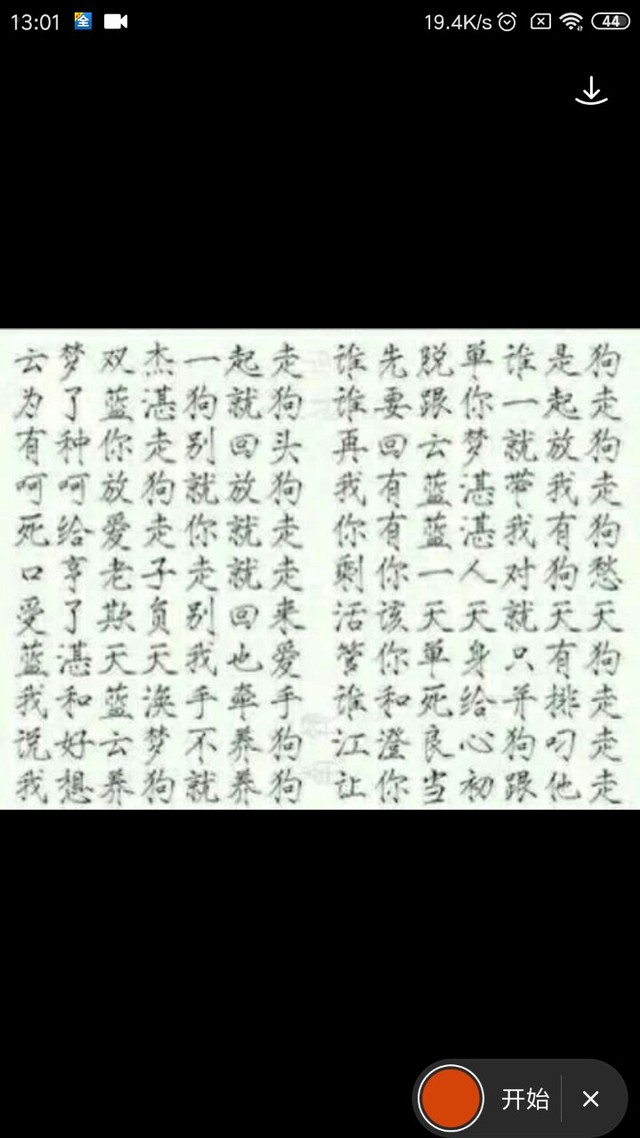 13:01 全 19.4K/s 44
云梦双杰一起走 谁先脱单谁是狗
为了蓝湛狗就狗 谁要跟你一起走
有种你走别回头 再回云梦就放狗
呵呵放狗就放狗 我有蓝湛带我走
死给爱走你就走 你有蓝湛我有狗
口亨老子走就走 剩你一人对狗愁
受了欺负别回来 活该天天就天天
蓝湛天天我也爱 管你单身只有狗
我和蓝涣手牵手 谁和死给并排走
说好云梦不养狗 江澄良心狗叼走
我想养狗就养狗 让你当初跟他走
开始